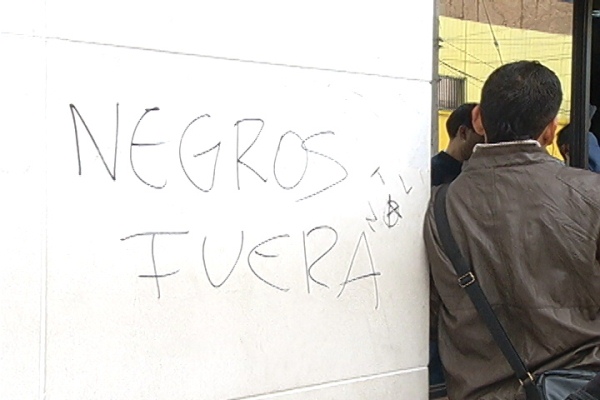 NEGROS
FUERA